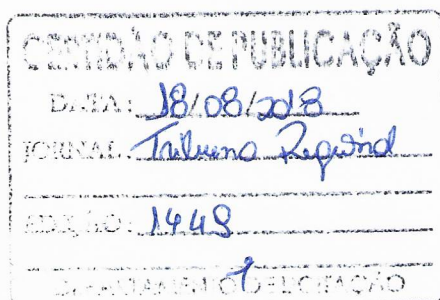 CERTIDÃO DE PUBLICAÇÃO
DATA: 18/08/2018
JORNAL: Tribuna Regional
EDIÇÃO: 1449
DEPARTAMENTO DE LICITAÇÃO